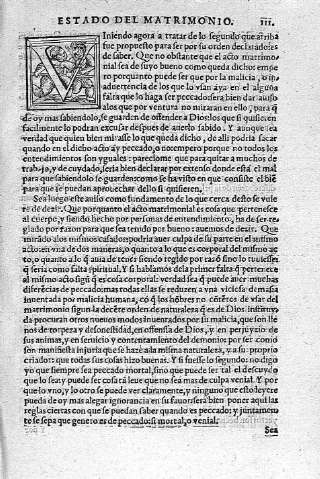 ESTADO DEL MATRIMONIO. III.
VIniendo agora a tratar de lo segundo que arriba
fue propuesto para ser por su orden declarado es
de saber. Que no obstante que el acto matrimo
nial sea de suyo bueno como queda dicho: empe
ro porquanto puede ser que por la malicia, o in
aduertencia de los que lo vsan aya en el alguna
falta que lo haga ser peccado sera bien dar auiso
a los que por ventura no miraran en ello, para q̃
de oy mas sabiendolo, se guarden de ofender a Dios: los que si quisierẽ
facilmente lo podran escusar despues de auerlo sabido. Y aunque sea
verdad que quien bien mirasse lo que queda dicho, de alli podria sacar
quando en el dicho acto ay peccado, o no: empero porque no todos los
entendimientos son yguales: pareciome que para quitar a muchos de
trabajo, y de cuydado, seria bien declarar por extenso donde esta el mal
para que sabiendolo se guarden: como se ha visto en que consiste el biẽ
para que se puedan aprouechar dello si quisieren.
Sea luego este auiso como fundamento de lo que cerca desto se vuie
re de dezir. Que porque el acto matrimonial es cosa que pertenesce
al cuerpo, y siendo hecho por personas de entendimiento, ha de ser re
glado por razon para que sea tenido por bueno: auemos de dezir. Que
mirãdo a los mismos casados: podria auer culpa de su parte en el mismo
acto: en vna de dos maneras, o quanto a lo que es corporal del mismo ac
to, o quanto a lo q̃ auia de tener siendo regido por razõ sino lo tuuiesse:
q̃ seria como falta spiritual. Y si hablamos de la primera falta q̃ pertenece
al mismo acto segũ q̃ es cosa corporal: verdad sea q̃ puede auer muchas
diferẽcias de peccados: mas todas ellas se reduzen a vna viciosa demasia
inuentada por malicia humana, cõ q̃ los hõbres no cõtẽtos de vsar del
matrimonio segun la decẽte orden de naturaleza q̃ es de Dios instituyda
procuran otros nueuos modos inuentados por su malicia, que son lle
nos de torpeza y desonestidad, en offensa de Dios, y en perjuyzio de
sus animas, y en seruicio y contentamiento del demonio: por ser como
son manifiesta injuria que se haze a la misma naturaleza, y a su proprio
criador: que todas sus cosas hizo buenas. Y si fuesse lo segundo: no digo
yo que siempre sea peccado mortal, sino que puede ser tal el descuydo
que lo sea: y puede ser cosa tã leue que no sea mas de culpa venial. Y por
que lo vno, y lo otro se puede ver claramente, y ninguno que esto leyere
pueda de oy mas alegar ignorancia en su fauor: sera bien poner aqui las
reglas ciertas con que se puedan saber quando es peccado: y juntamen
te se sepa que genero es de peccado: si mortal, o venial.
Sea